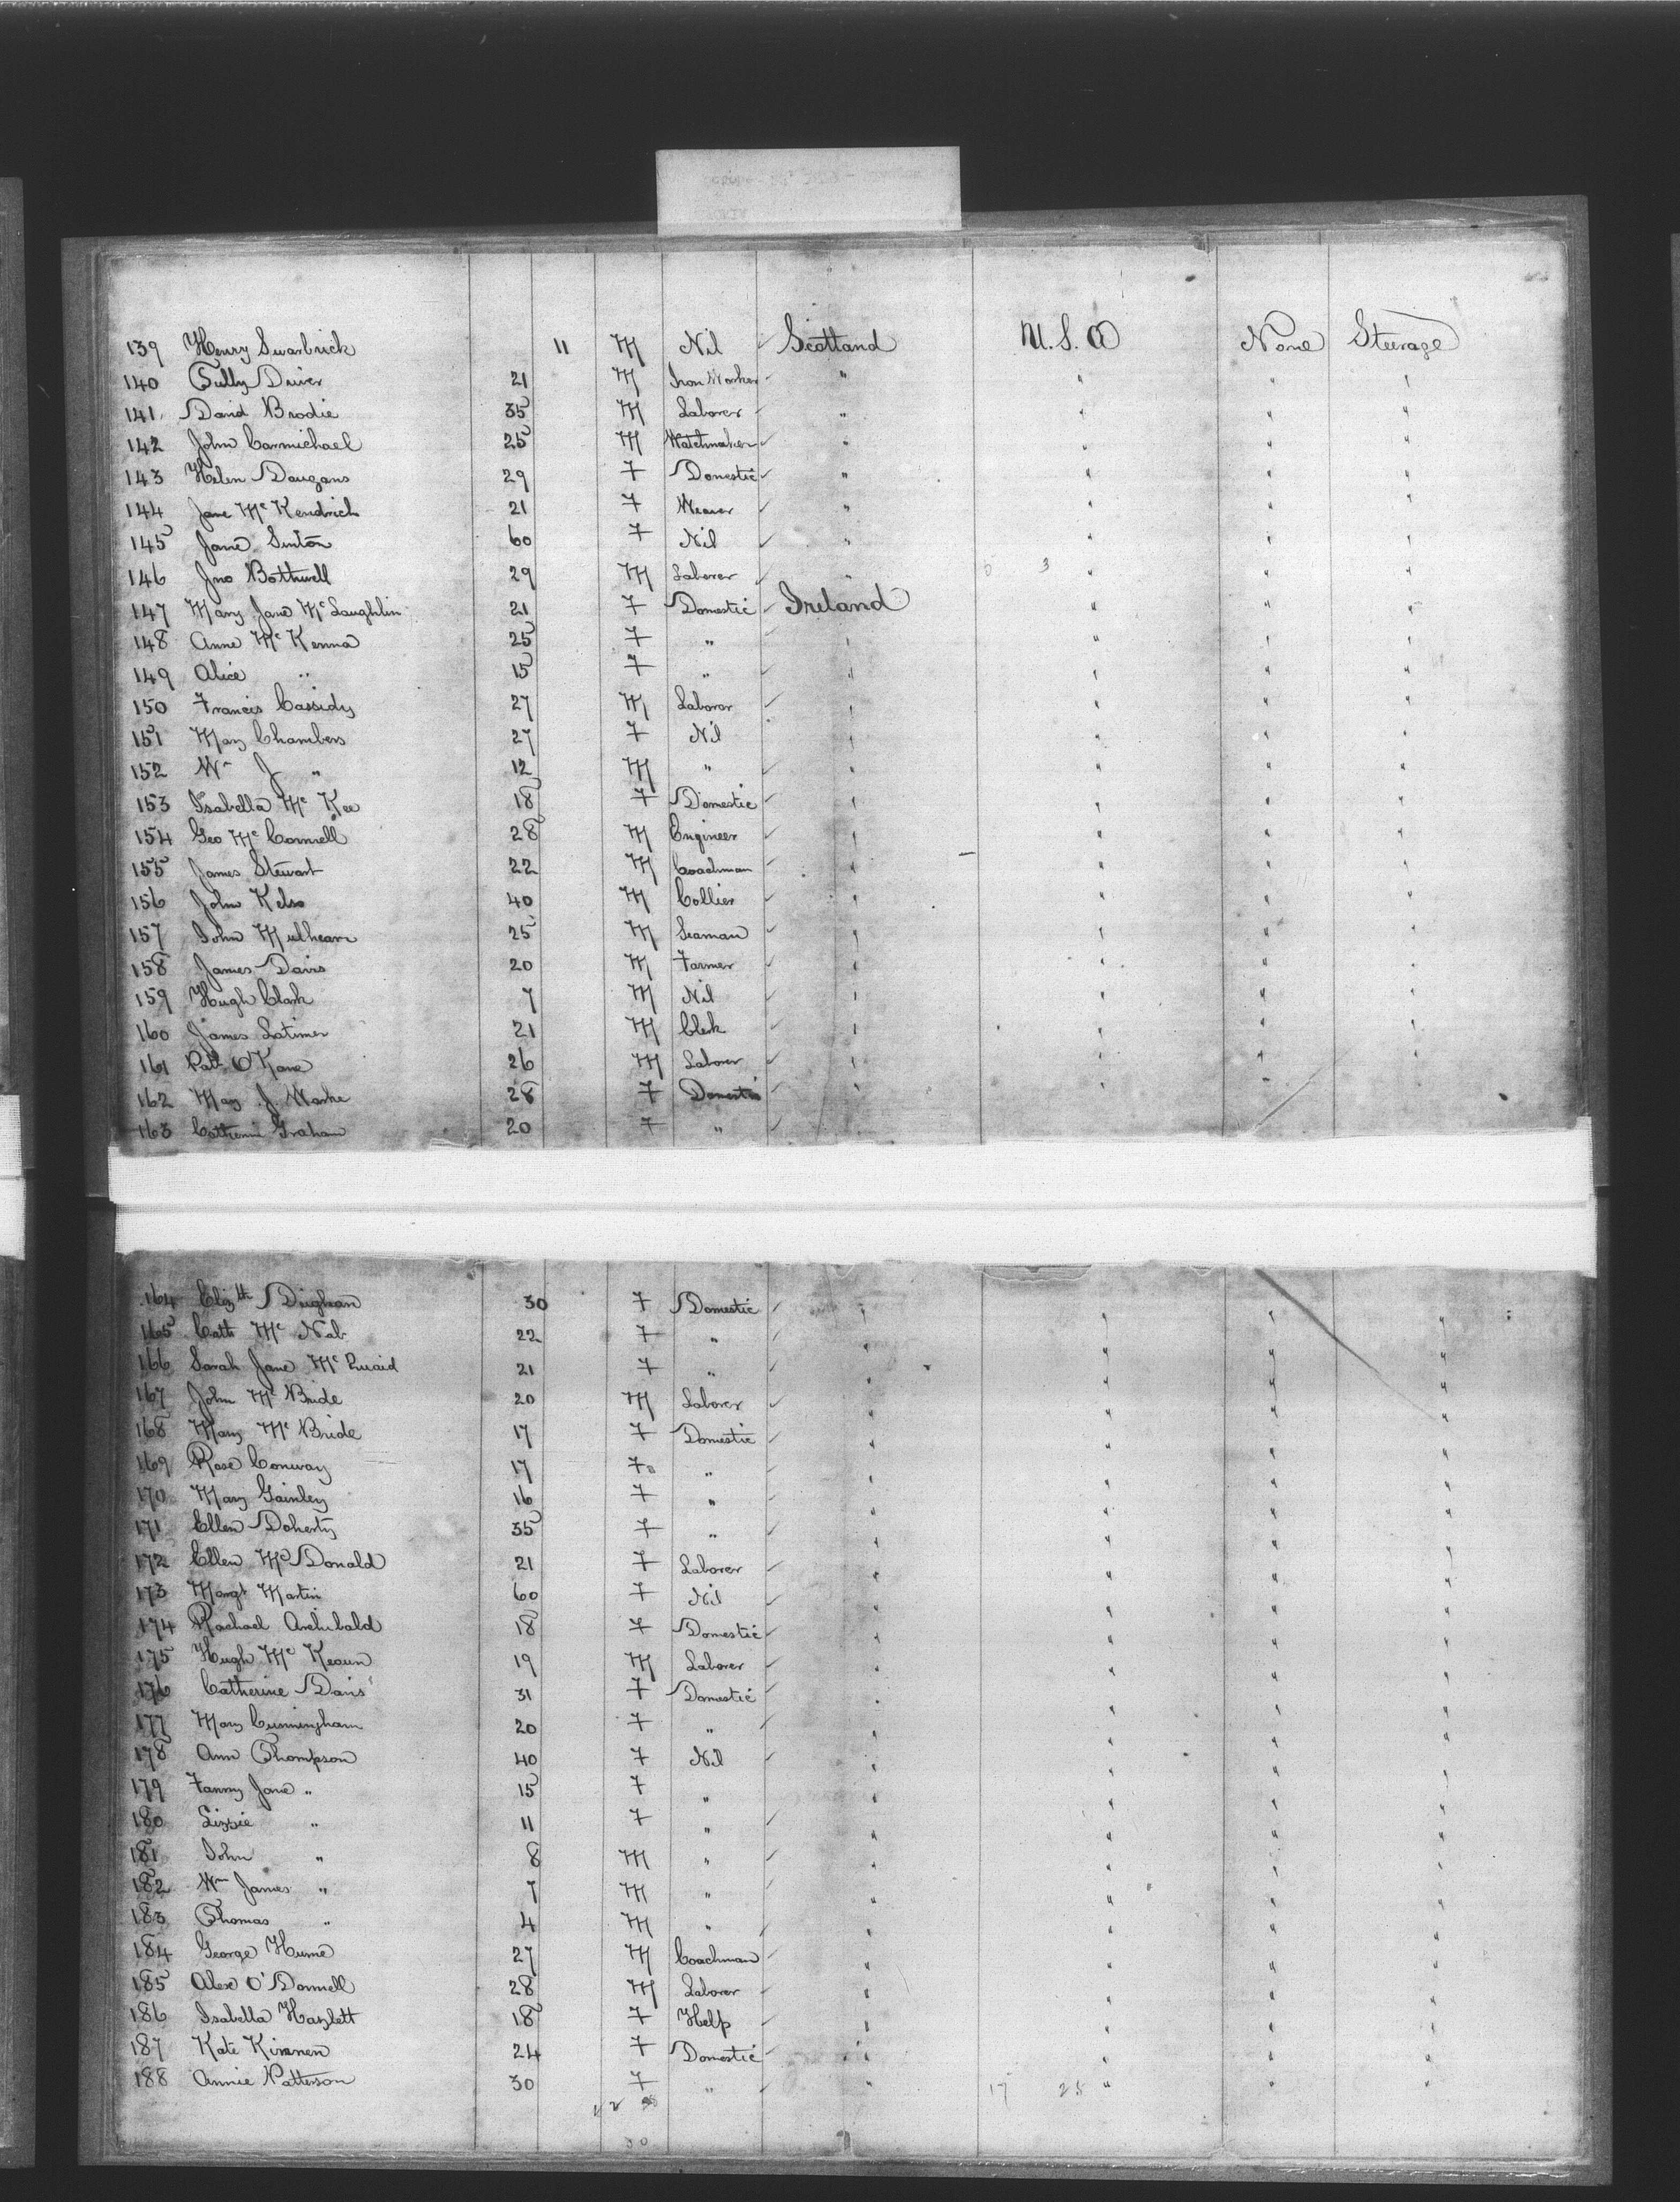 139 Henry Swarbrick 11 M Nil Scotland U.S.A None Steerage
140 Tully Driver 21 M Iron Worker " " " "
141 David Brodie 35 M Laborer " " " "
142 John Carmichael 25 M Watchmaker " " " "
143 Helen Daugans 29 F Domestic " " " "
144 Jane McKendrick 21 F Weaver " " " "
145 Jane Sinton 60 F Nil " " " "
146 Jno Bothwell 29 M Laborer " 3 " " "
147 Mary Jane McLaughlin 21 F Domestic Ireland " " "
148 Anne McKenna 25 F " " " " "
149 Alice " 15 F " " " " "
150 Francis Cassidy 27 M Laborer " " " "
151 Mary Chambers 27 F Nil " " " "
152 Wm J " 12 M " " " " "
153 Isabella McKee 18 F Domestic " " " "
154 Geo McConnell 28 M Engineer " " " "
155 James Stewart 22 M Coachman " " " "
156 John Kelso 40 M Collier " " " "
157 John Mulhearn 25 M Seaman " " " "
158 James Davis 20 M Farmer " " " "
159 Hugh Clark 7 M Nil " " " "
160 James Latimer 21 M Clerk " " " "
161 Patk O'Kane 26 M Laborer " " " "
162 Mary J. Warke 28 F Domestic " " "
163 Catherine Graham 20 F "
164 Elizth Deighan 30 F Domestic " " " "
165 Cath McNab 22 F " " " " "
166 Sarah Jane McQuaid 21 F " " " " "
167 John McBride 20 M Laborer " " " "
168 Mary McBride 17 F Domestic " " " "
169 Rose Conway 17 F " " " " "
170 Mary Gainley 16 F " " " " "
171 Ellen Doherty 35 F " " " " "
172 Ellen McDonald 21 F Laborer " " " "
173 Margt Martin 60 F Nil " " " "
174 Rachael Archibald 18 F Domestic " " " "
175 Hugh McKeown 19 M Laborer " " " "
176 Catherine Davis 31 F Domestic " " " "
177 Mary Cunningham 20 F " " " " "
178 Ann Thompson 40 F Nil " " " "
179 Fanny Jane " 15 F " " " " "
180 Lizzie " 11 F " " " " "
181 John " 8 M " " " " "
182 Wm James " 7 M " " " " "
183 Thomas " 4 M " " " " "
184 George Hume 27 M Coachman " " " "
185 Alex O'Donnell 28 M Laborer " " " "
186 Isabella Hazlett 18 F Help " " " "
187 Kate Kinnen 24 F Domestic " " " "
188 Annie Patterson 30 F " " 17 25 " " "